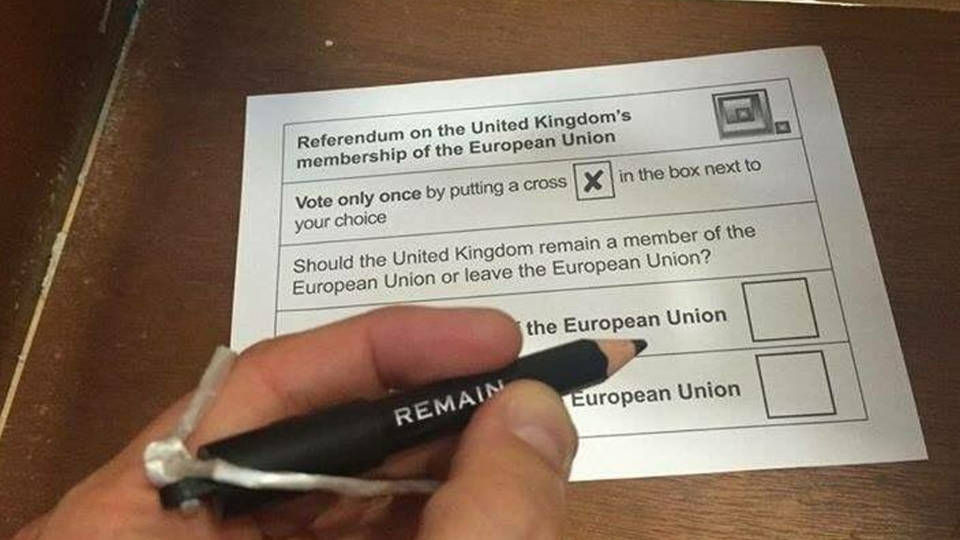 Referendum on the United Kingdom's
membership of the European Union
Vote only once by putting a cross X in the box next to
your choice
Should the United Kingdom remain a member of the
European Union or leave the European Union?
the European Union
European Union
REMAIN